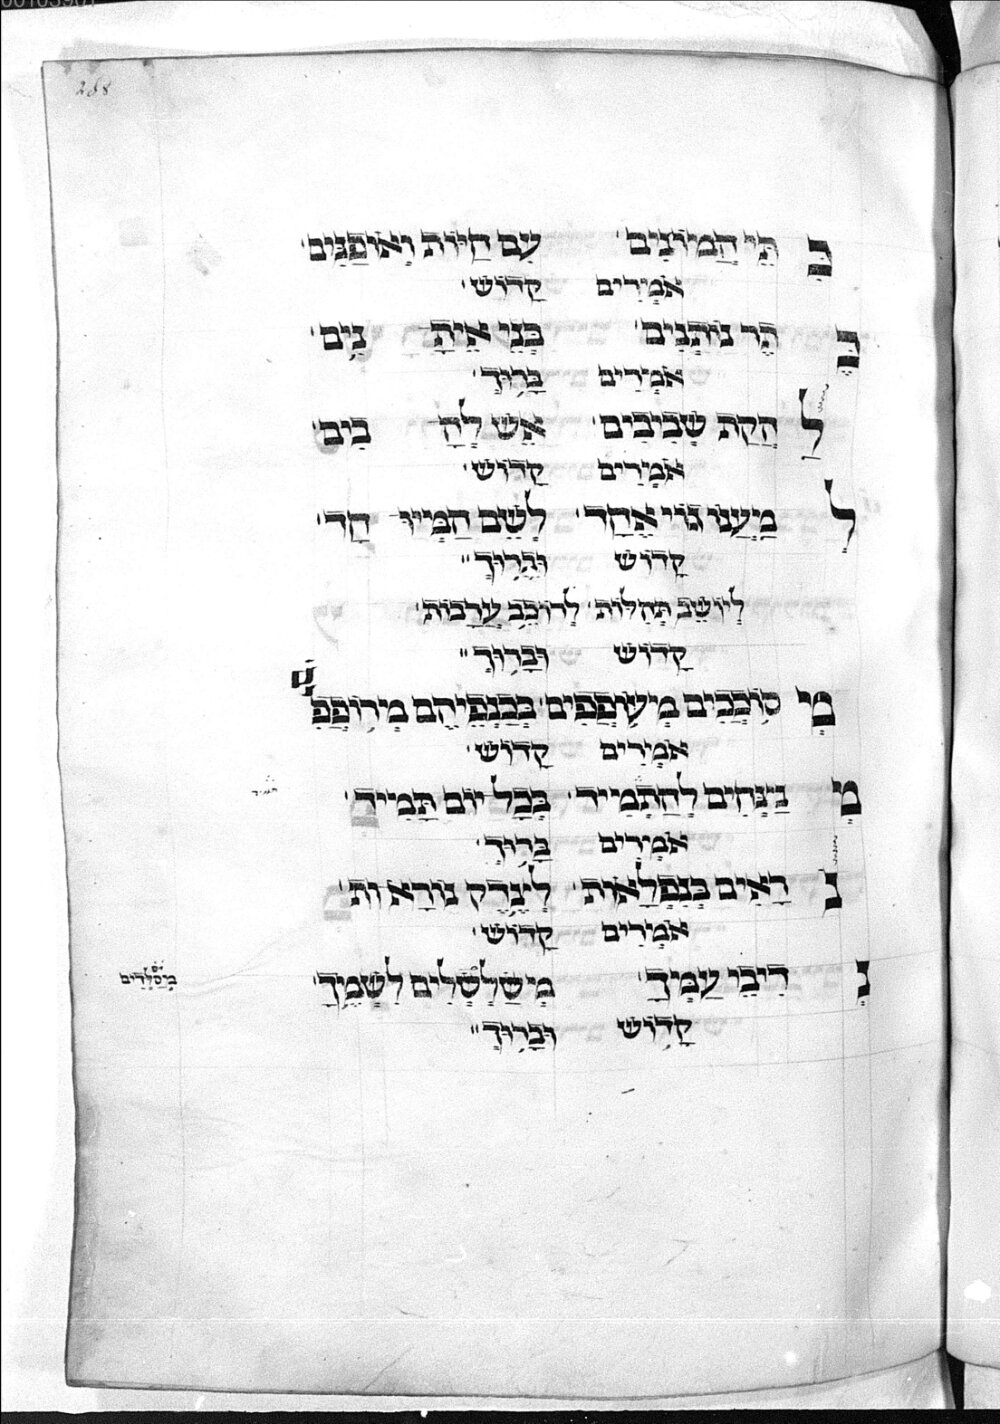 288
כִּתֵּי הֲמוֹנִים· עִם חַיּוֹת וְאוֹפַנִּים·
אֹמְרִים קָדוֹשׁ·
כֶּתֶר נוֹתְנִים· בְּנֵי אֵיתָ נִים·
אֹמְרִים בָּרוּךְ·
לַהֲקַת שְׁבִיבִים· אֵשׁ לֶהָ בִים·
אֹמְרִים קָדוֹשׁ·
לְמַעֲנוֹ גוֹי אֶחָד· לְשֵׁם הַמְּיוּ חָד·
קָדוֹשׁ וּבָרוּךְ״
לְיוֹשֵׁב תְּהִלּוֹת· לְרוֹכֵב עֲרָבוֹת·
קָדוֹשׁ וּבָרוּךְ״
מְסוֹבְבִים מְעוֹפְפִים· בְּכַנְפֵיהֶם מְרוֹפְפִ
ים
אֹמְרִים קָדוֹשׁ·
בְּכָל יוֹם תָּמִיד·
אֹמְרִים בָּרוּךְ·
בְּנִפְלָאוֹת· נוֹרָאוֹת·
אֹמְרִים קָדוֹשׁ·
נְדִיבֵי עַמֶּיךָ· מְשַׁלְשְׁלִים לִשְׁמֶךָ·
קָדוֹשׁ וּבָרוּךְ״